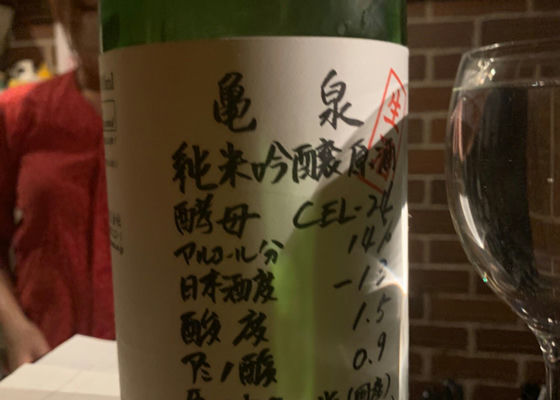 亀泉
生酒
純米吟醸原酒
酵母 CEL-24
アルコール分 14.
日本酒度 -1
酸度 1.5
アミノ酸 0.9
(国産)